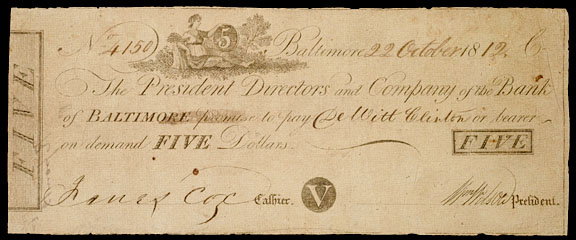 FIVE
No 4150
5
Baltimore 22 October 1812. C
The President Directors and Company of the Bank
of BALTIMORE promise to pay DeWitt Clinton or bearer
on demand FIVE Dollars. FIVE
James Cox Cashier. V Wm Wilson President.